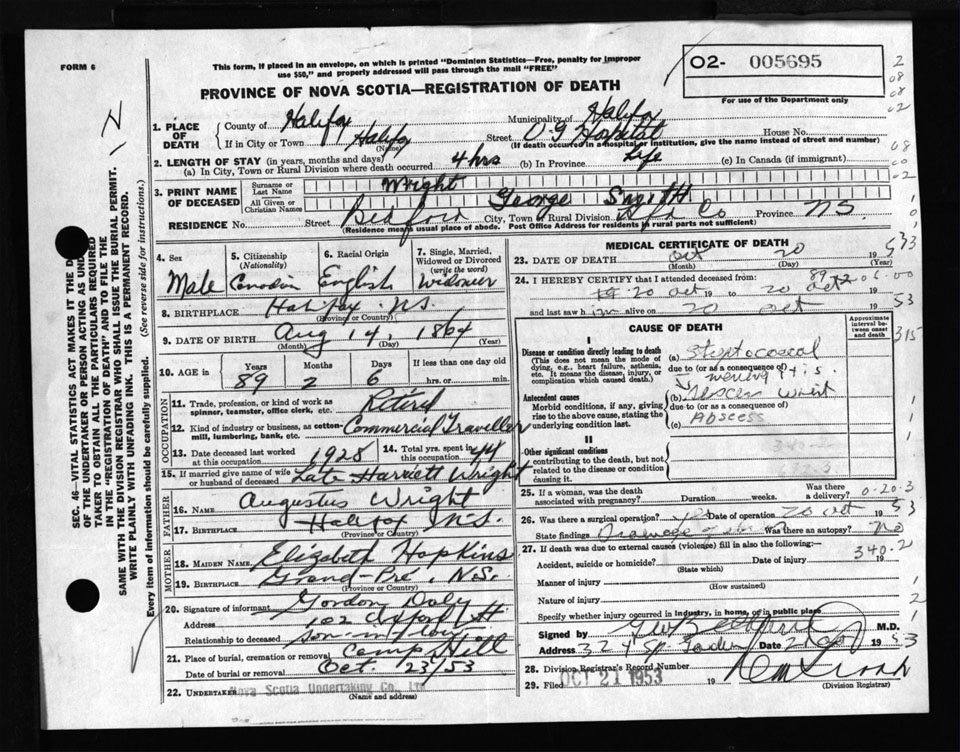 FORM 6
This form, if placed in an envelope, on which is printed "Dominion Statistics—Free, penalty for improper
use $50," and properly addressed will pass through the mail "FREE"
O2- 005695
For use of the Department only
PROVINCE OF NOVA SCOTIA—REGISTRATION OF DEATH
1. PLACE OF DEATH
County of Halifax Municipality of Halifax
If in City or Town Halifax Street Hospital House No.
(Name) (If death occurred in a hospital or institution, give the name instead of street and number)
2. LENGTH OF STAY (in years, months and days)
(a) In City, Town or Rural Division where death occurred 4 hrs (b) In Province Life (c) In Canada (if immigrant)
3. PRINT NAME OF DECEASED
Surname or Last Name Wright
All Given or Christian Names George Smith
RESIDENCE No. Street Bedford City, Town or Rural Division Hfx Co Province N.S.
(Residence means usual place of abode. Post Office Address for residents in rural parts not sufficient)
4. Sex Male
5. Citizenship (Nationality) Canadian
6. Racial Origin English
7. Single, Married, Widowed or Divorced (write the word) Widower
8. BIRTHPLACE Halifax N.S.
(Province or Country)
9. DATE OF BIRTH Aug 14 1864
(Month) (Day) (Year)
10. AGE in Years 89 Months 2 Days 6 If less than one day old hrs. or min.
OCCUPATION
11. Trade, profession or kind of work as spinner, teamster, office clerk, etc. Retired
12. Kind of industry or business, as cotton-mill, lumbering, bank, etc. Commercial Traveller
13. Date deceased last worked at this occupation 1928
14. Total yrs. spent in this occupation 44
15. If married give name of wife or husband of deceased Late Harriett Wright
FATHER
16. NAME Augustus Wright
17. BIRTHPLACE Halifax N.S.
(Province or Country)
MOTHER
18. MAIDEN NAME Elizabeth Hopkins
19. BIRTHPLACE Grand-Pré, N.S.
(Province or Country)
20. Signature of informant Gordon Daly
Address 102 Oxford St
Relationship to deceased Son-in-law
21. Place of burial, cremation or removal Camp Hill
Date of burial or removal Oct. 23/53
22. UNDERTAKER Nova Scotia Undertaking Co., Ltd
(Name and address)
MEDICAL CERTIFICATE OF DEATH
23. DATE OF DEATH Oct 20 1953
(Month) (Day) (Year)
24. I HEREBY CERTIFY that I attended deceased from
20 Oct 19 to 20 Oct
and last saw him alive on 20 Oct 1953
CAUSE OF DEATH
Approximate interval between onset and death
I
Disease or condition directly leading to death
(This does not mean the mode of dying, e.g., heart failure, asthenia, etc. It means the disease, injury, or complication which caused death.)
(a) Streptococcal
due to (or as a consequence of)
Antecedent causes
Morbid conditions, if any, giving rise to the above cause, stating the underlying condition last.
(b)
due to (or as a consequence of)
(c) Abscess
II
Other significant conditions
contributing to the death, but not related to the disease or condition causing it.
25. If a woman, was the death associated with pregnancy? Duration weeks. Was there a delivery?
26. Was there a surgical operation? yes Date of operation 20 Oct 53
State findings Drainage of Was there an autopsy? No
27. If death was due to external causes (violence) fill in also the following:—
Accident, suicide or homicide? Date of injury 340.2
(State which)
Manner of injury
(How sustained)
Nature of injury
Specify whether injury occurred in industry, in home, or in public place
Signed by M.D.
Address 324 Date 21 Oct 1953
28. Division Registrar's Record Number
29. Filed OCT 21 1953 19
(Division Registrar)
SEC. 46—VITAL STATISTICS ACT MAKES IT THE
OF THE UNDERTAKER OR PERSON ACTING AS UND
TAKER TO OBTAIN ALL THE PARTICULARS REQUIRED
IN THE "REGISTRATION OF DEATH" AND TO FILE THE
SAME WITH THE DIVISION REGISTRAR WHO SHALL ISSUE THE BURIAL PERMIT.
WRITE PLAINLY WITH UNFADING INK. THIS IS A PERMANENT RECORD.
Every item of information should be carefully supplied. (See reverse side for instructions.)